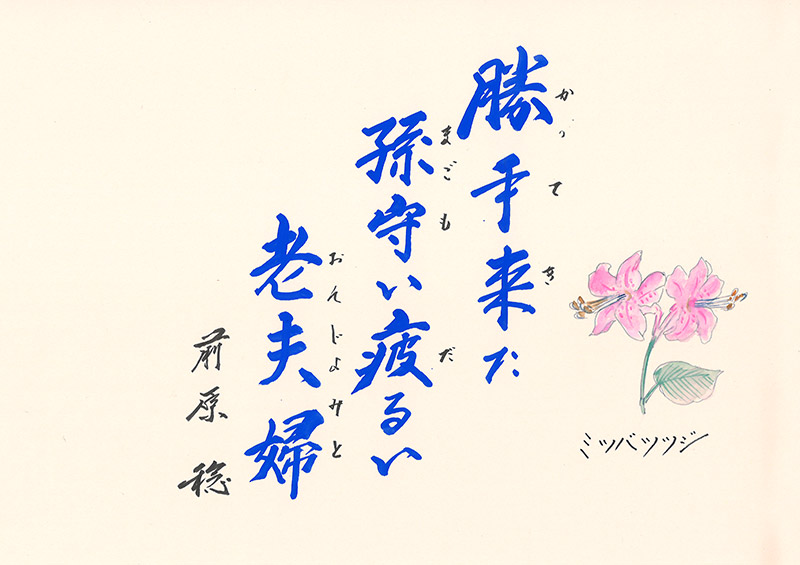 勝手来た
かってき
孫守い疲るい
まごもだ
老夫婦
おんじよみと
前原稔
ミツバツツジ